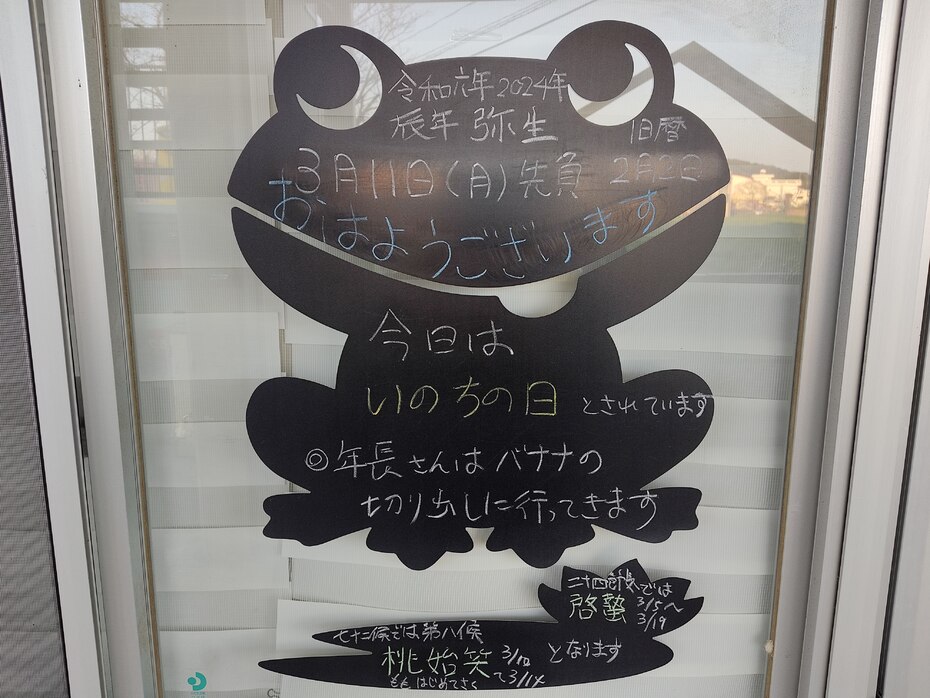 令和六年 2024年
辰年 弥生 旧暦
3月11日(月)先負 2月2日
おはようございます
今日は
いのちの日 とされています
◎年長さんは バナナの
切り出しに行ってきます
二十四節気では
啓蟄 3/5〜
3/19
七十二候では第八候
桃始笑 3/10
〜3/14 となります
ももはじめてさく